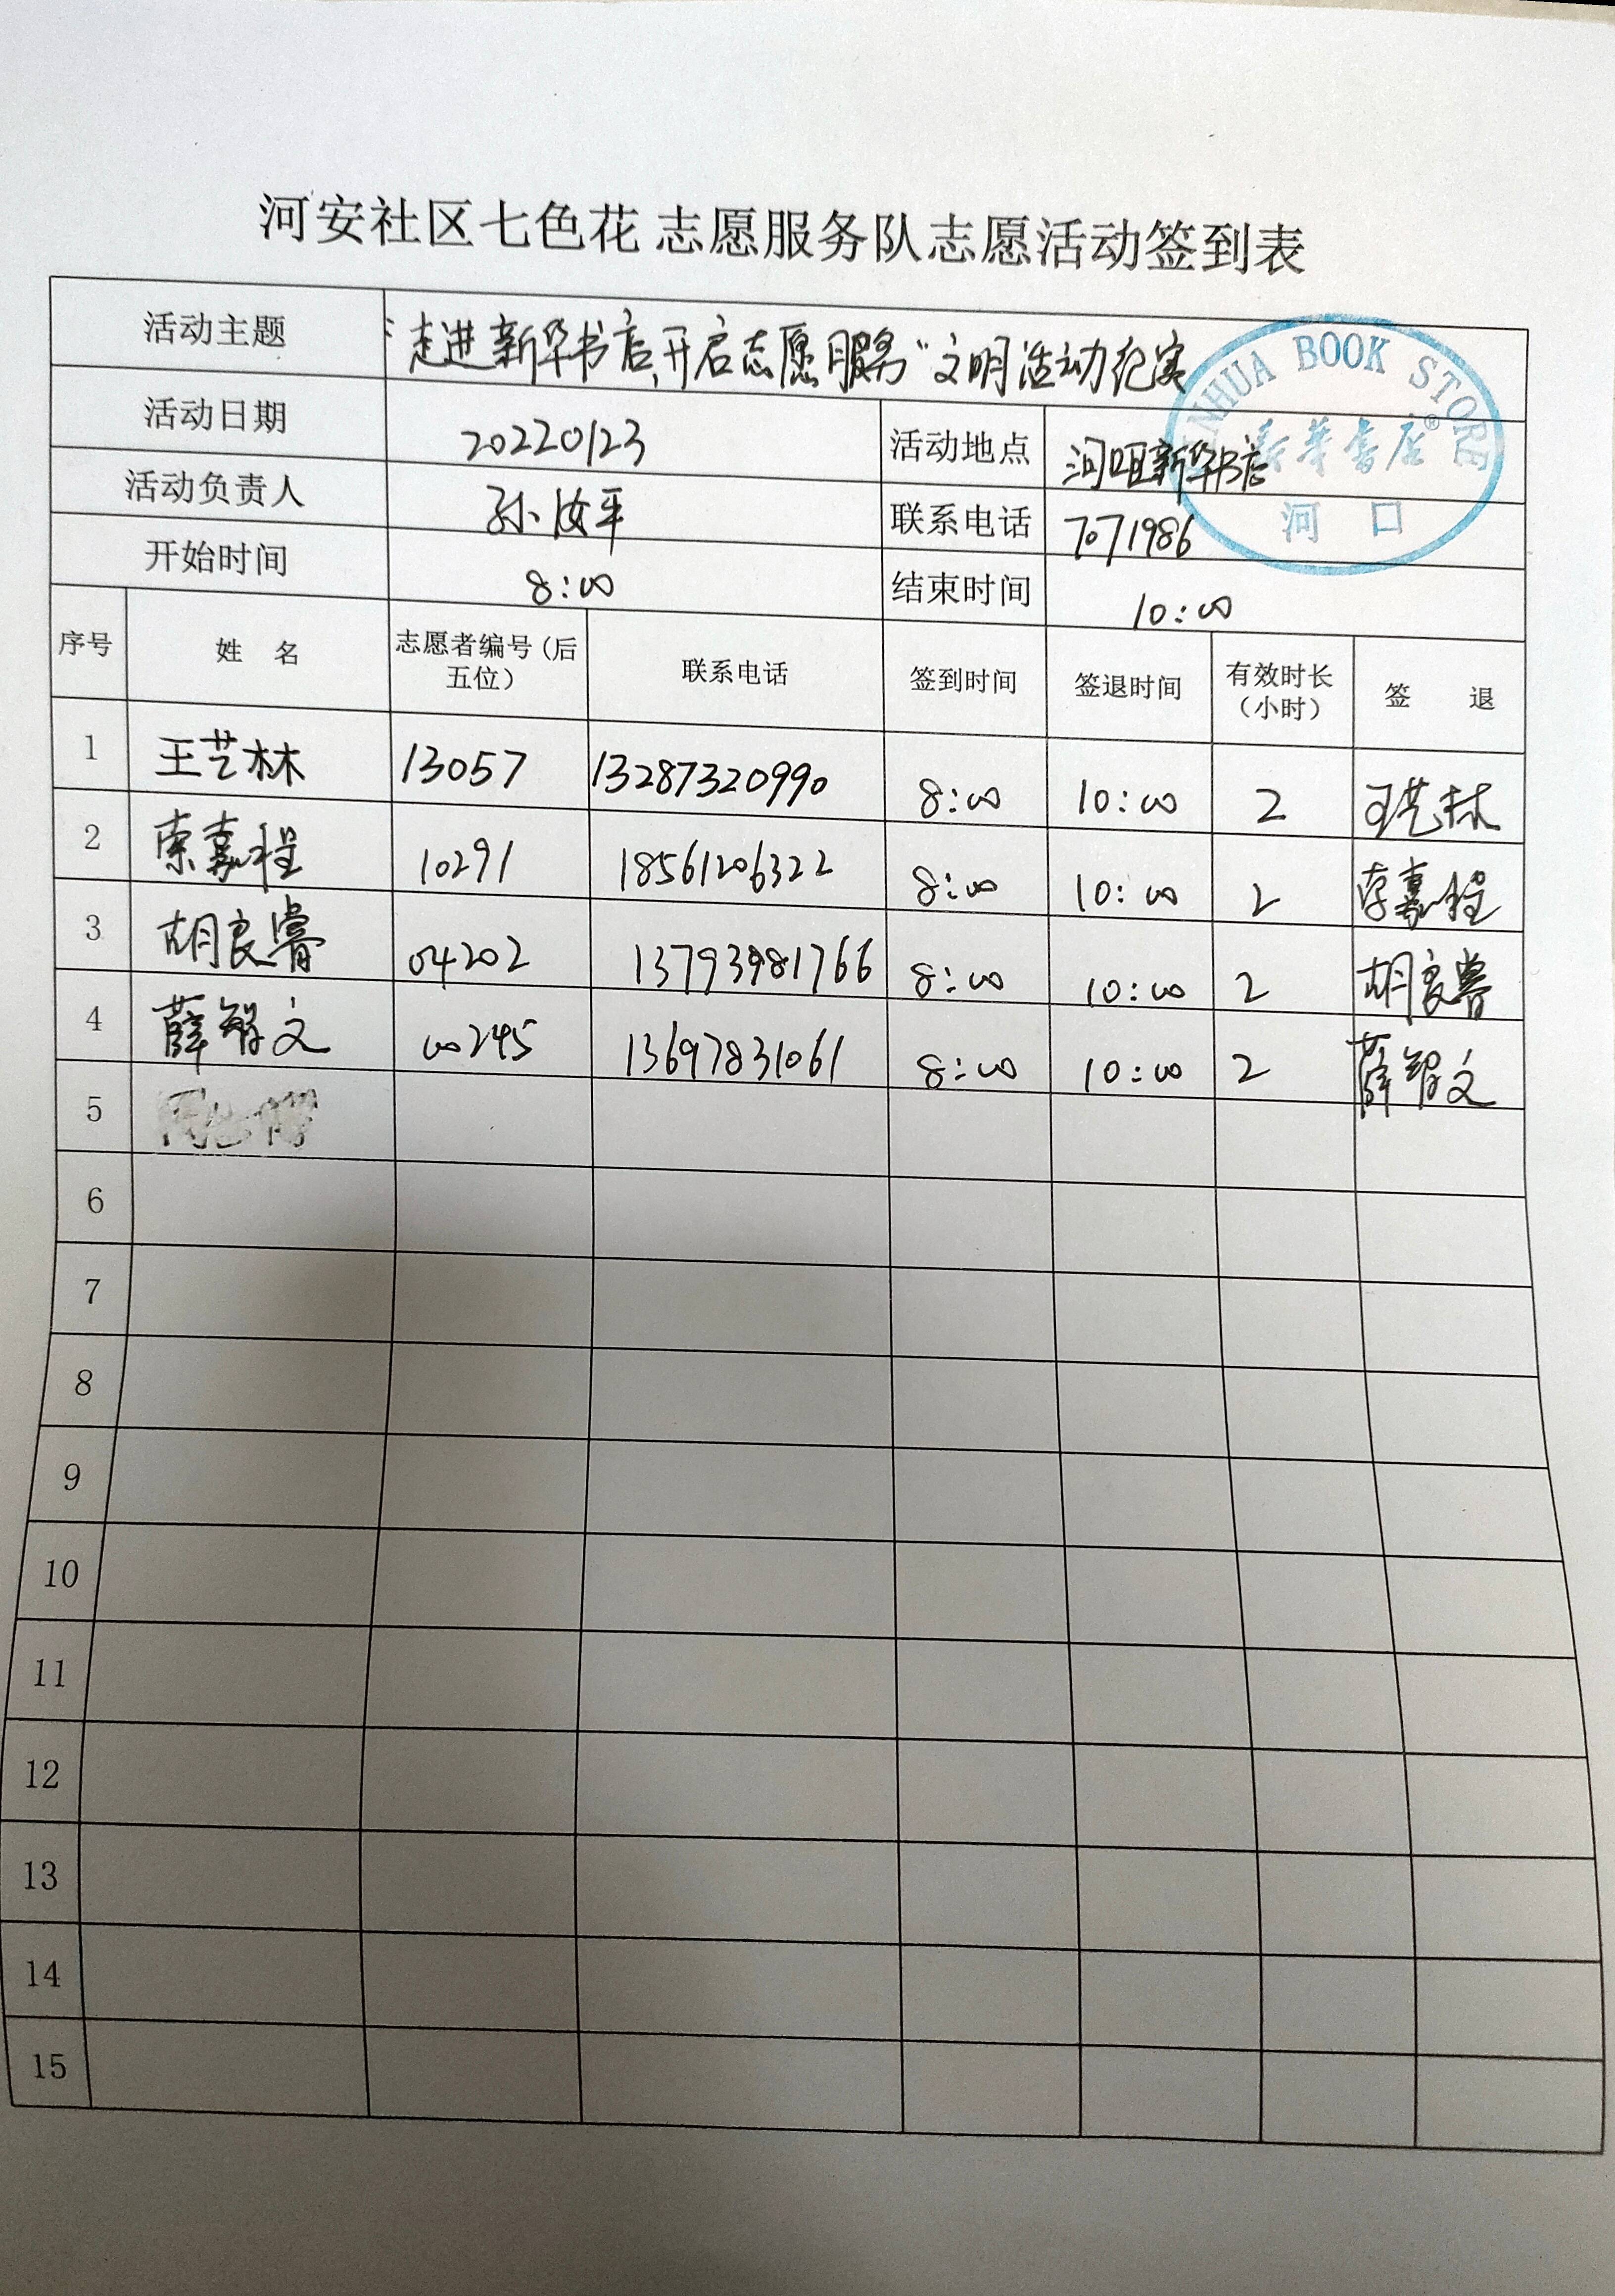 河安社区七色花 志愿服务队志愿活动签到表
活动主题 “走进新华书店,开启志愿服务”文明活动纪实
活动日期 20220123 活动地点 河口区新华书店
活动负责人 孙汝平 联系电话 7071986
开始时间 8:00 结束时间 10:00
XINHUA BOOK STORE
新华书店®
河 口
序号 姓 名 志愿者编号(后五位) 联系电话 签到时间 签退时间 有效时长(小时) 签 退
1 王艺林 13057 13287320990 8:00 10:00 2 王艺林
2 索嘉程 10291 18561206322 8:00 10:00 2 嘉程
3 胡良睿 04202 13793981766 8:00 10:00 2 胡良睿
4 薛智文 00245 13697831061 8:00 10:00 2 薛智文
5
6
7
8
9
10
11
12
13
14
15